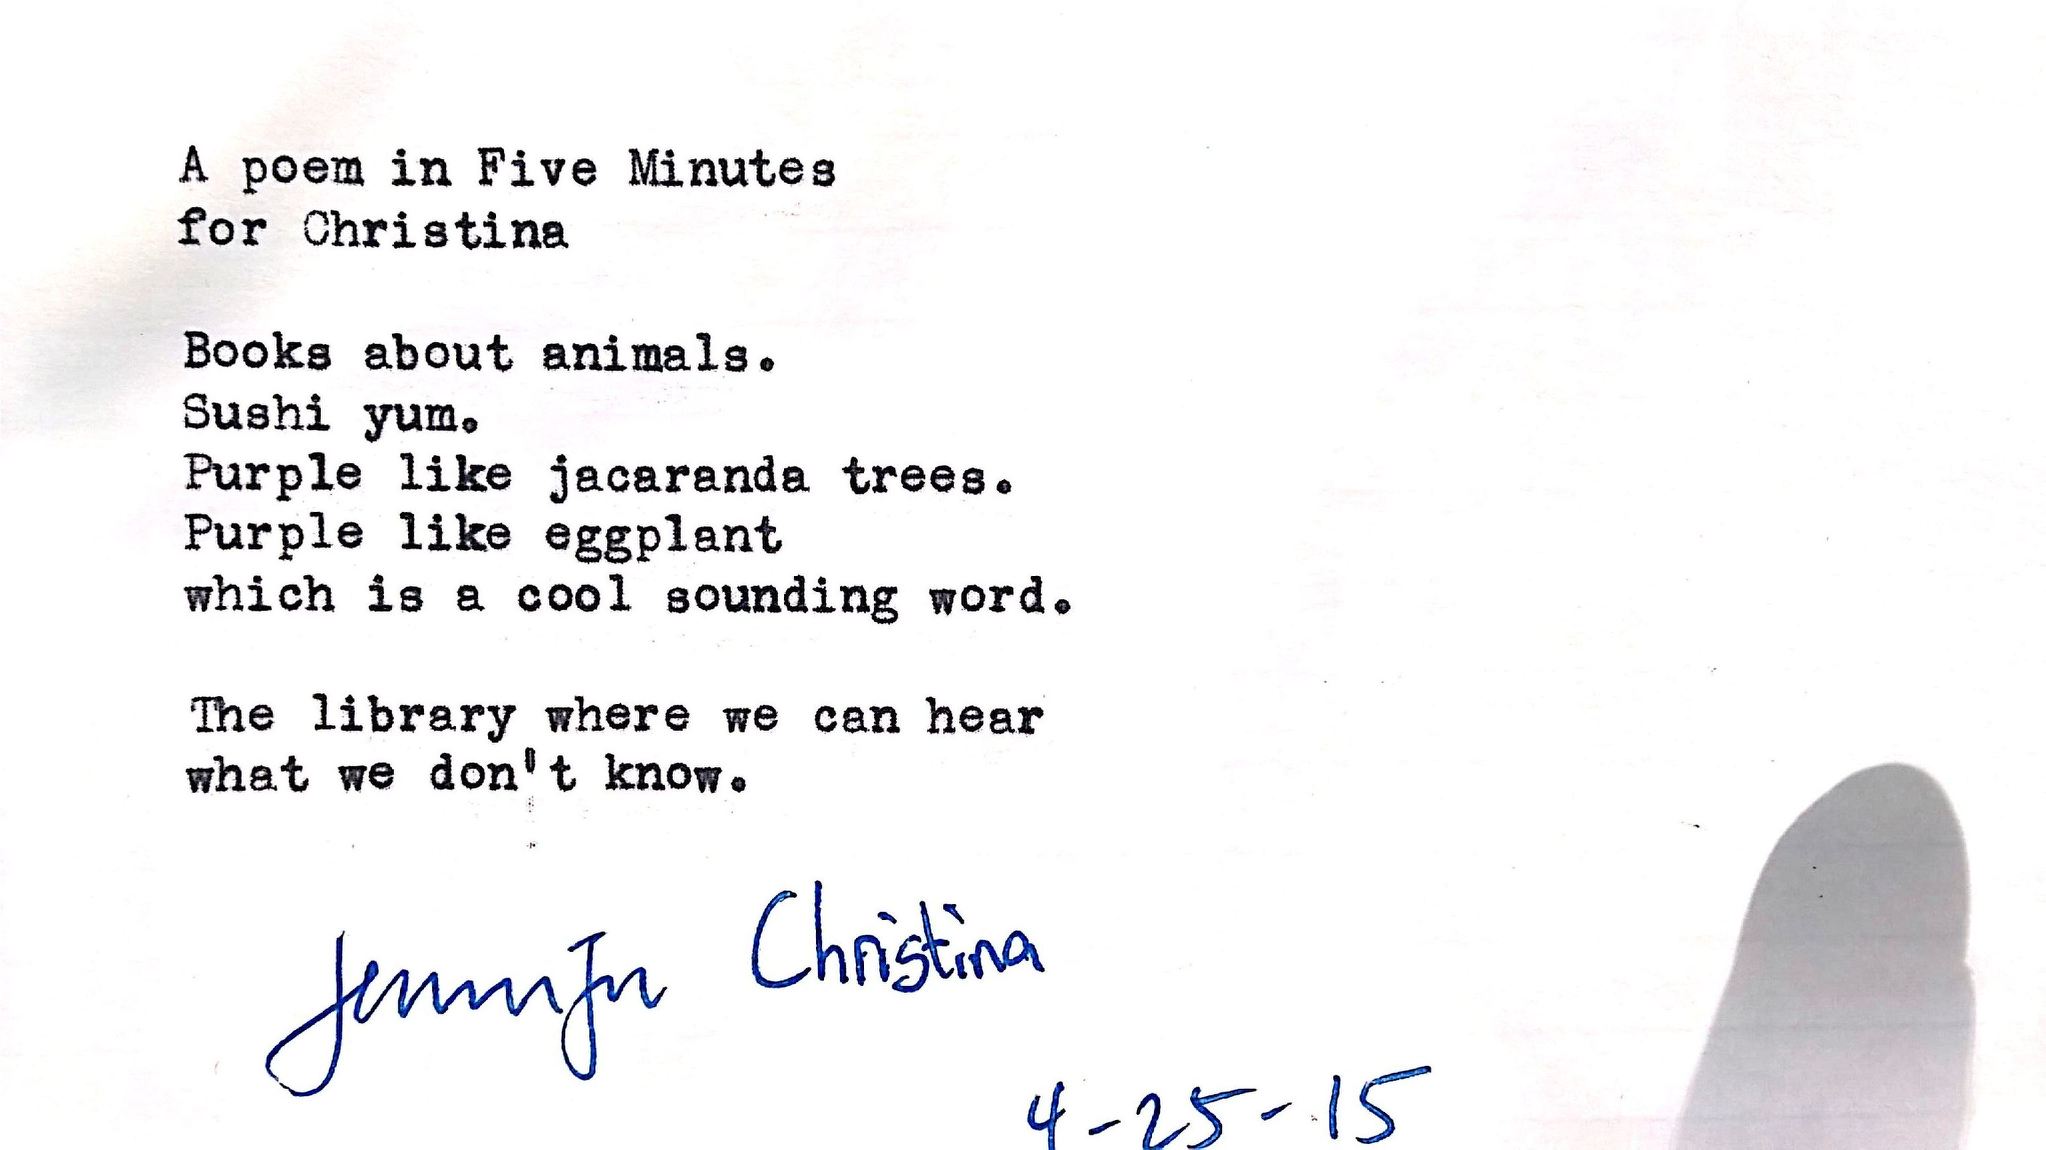 A poem in Five Minutes
for Christina
Books about animals.
Sushi yum.
Purple like jacaranda trees.
Purple like eggplant
which is a cool sounding word.
The library where we can hear
what we don't know.
Jennifer Christina
4-25-15